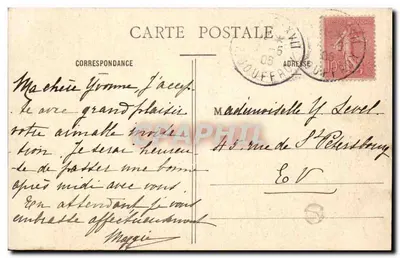 CARTE POSTALE
CORRESPONDANCE
ADRESSE
Ma chère Yvonne, J'accep
te avec grand plaisir
votre aimable invita
tion. Je serai heureu
se de passer une bonne
après midi avec vous.
En attendant je vous
embrasse affectueusement
Maggie
Mademoiselle Y. Level
45 rue de St Petersbourg
E V